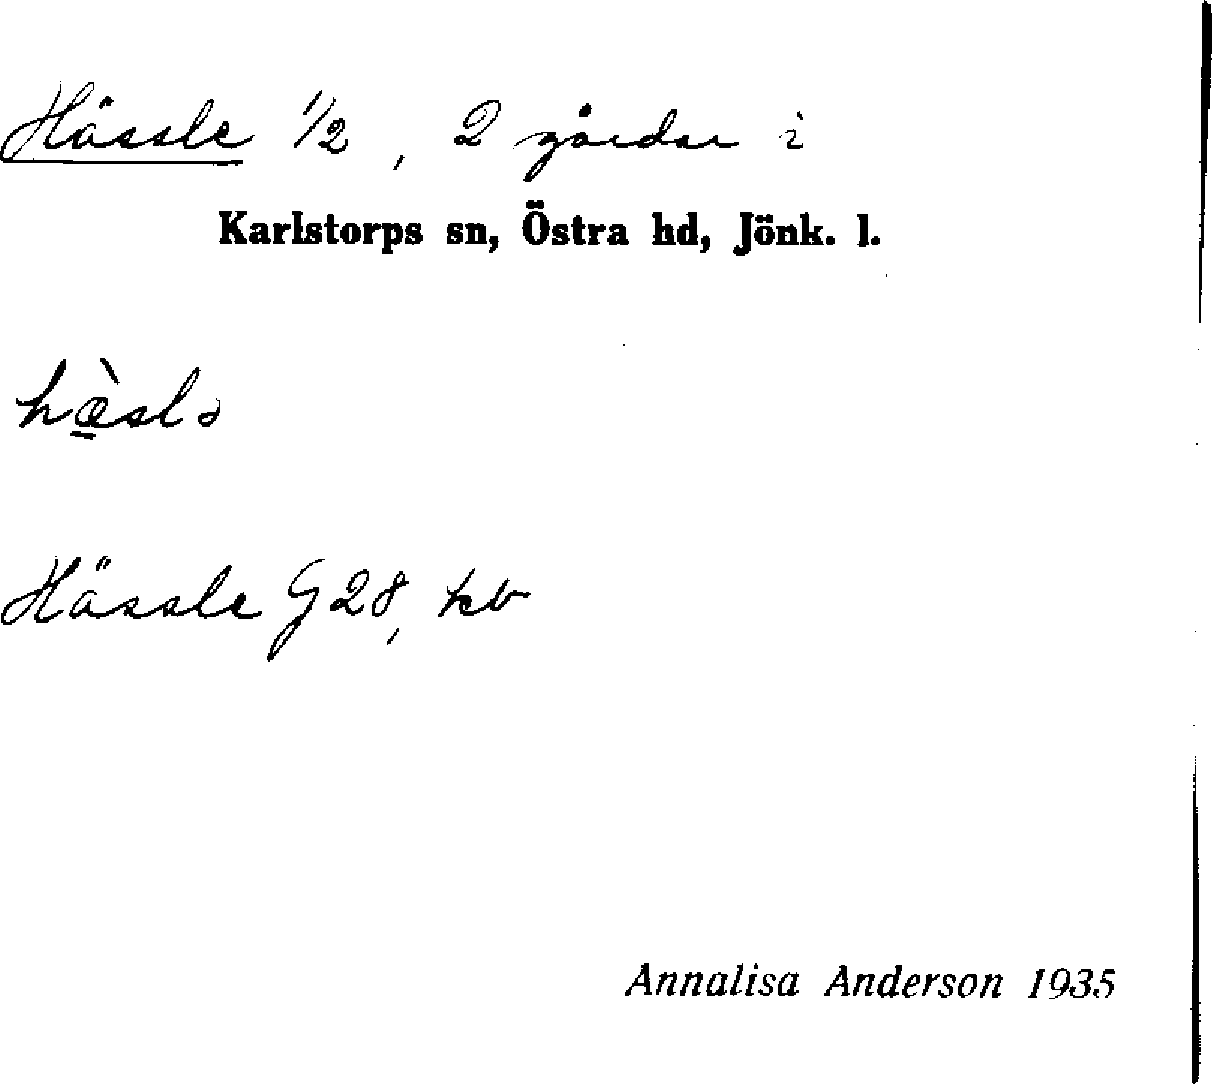 Hässle 1/2, 2 gårdar i
Karlstorps sn, Östra hd, Jönk. l.
hæ̠̀slə
Hässle G28, kb
Annalisa Anderson 1935